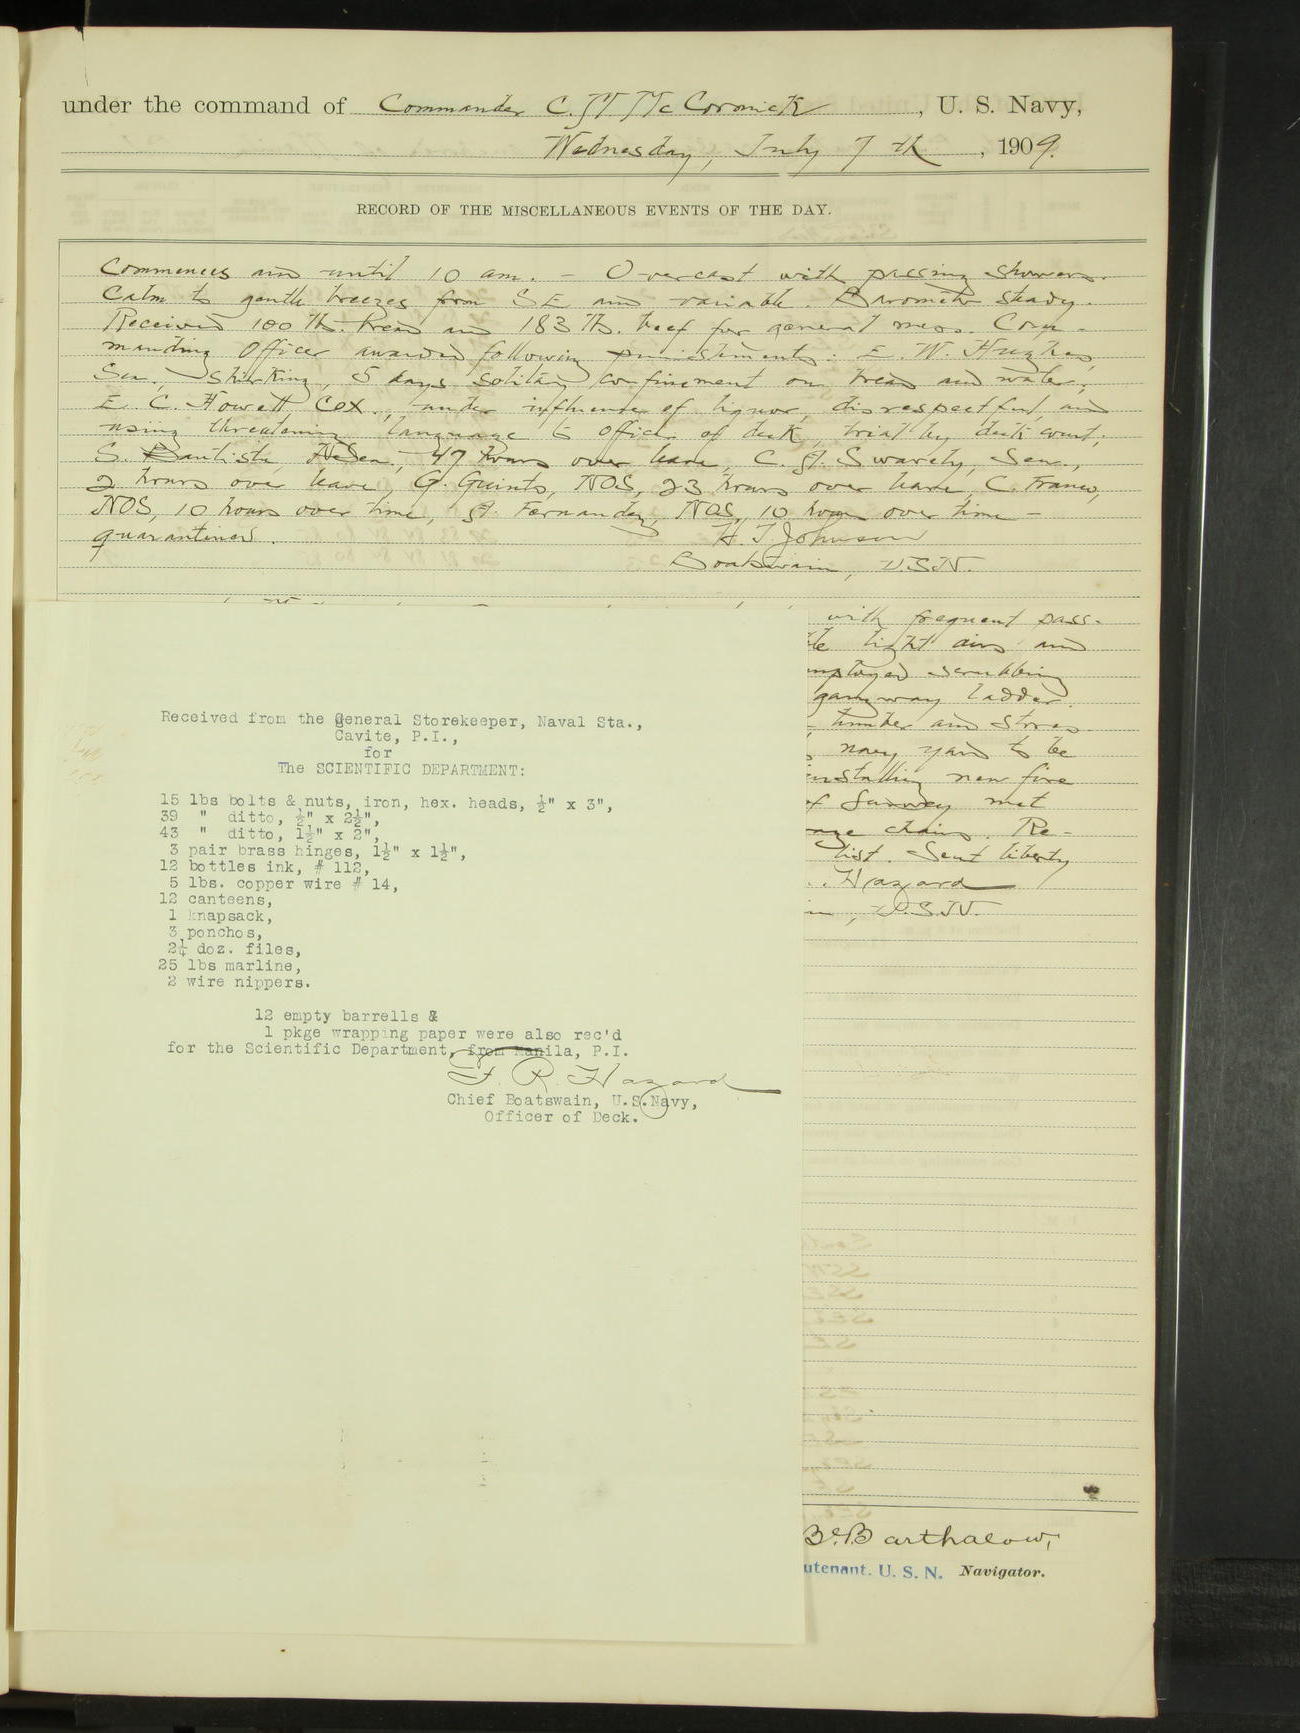 under the command of Commander C. A. McCormick, U. S. Navy,
Wednesday, July 7th, 1909.
RECORD OF THE MISCELLANEOUS EVENTS OF THE DAY.
Commences and until 10 am. - Overcast with passing showers.
Calm to gentle breezes from SE and variable. Barometer steady.
Received 100 lb. bread and 183 lb. beef for general mess. Com-
manding Officer awarded following punishments: E. W. Hughes,
Sea., Shirking, 5 days solitary confinement on bread and water;
E. C. Howett, Cox., under influence of liquor, disrespectful, and
using threatening language to officer of deck, trial by deck court;
S. Bautista, 47 hours over leave, C. A. Swarely, Sea.,
2 hours over leave, G. Guinto, NOS, 23 hours over leave, C. Franco,
NOS, 10 hours over time, A. Fernandez, NOS, 10 hours over time -
quarantined. H. T. Johnson
Boatswain, U.S.N.
with frequent pass-
light airs and
employed scrubbing
gangway ladder.
lumber and stores
navy yard to be
installing new fire
of Survey met
chains. Re-
list. Sent liberty
Hazard
U.S.N.
Received from the General Storekeeper, Naval Sta.,
Cavite, P.I.,
for
The SCIENTIFIC DEPARTMENT:
15 lbs bolts & nuts, iron, hex. heads, ½" x 3",
39 " ditto, ½" x 2½",
43 " ditto, 1½" x 2",
3 pair brass hinges, 1½" x 1½",
12 bottles ink, # 112,
5 lbs. copper wire # 14,
12 canteens,
1 knapsack,
3 ponchos,
2¼ doz. files,
25 lbs marline,
2 wire nippers.
12 empty barrells &
1 pkge wrapping paper were also rec'd
for the Scientific Department, from Manila, P.I.
F. R. Hazard
Chief Boatswain, U.S.Navy,
Officer of Deck.
Barthalow,
utenant. U. S. N. Navigator.